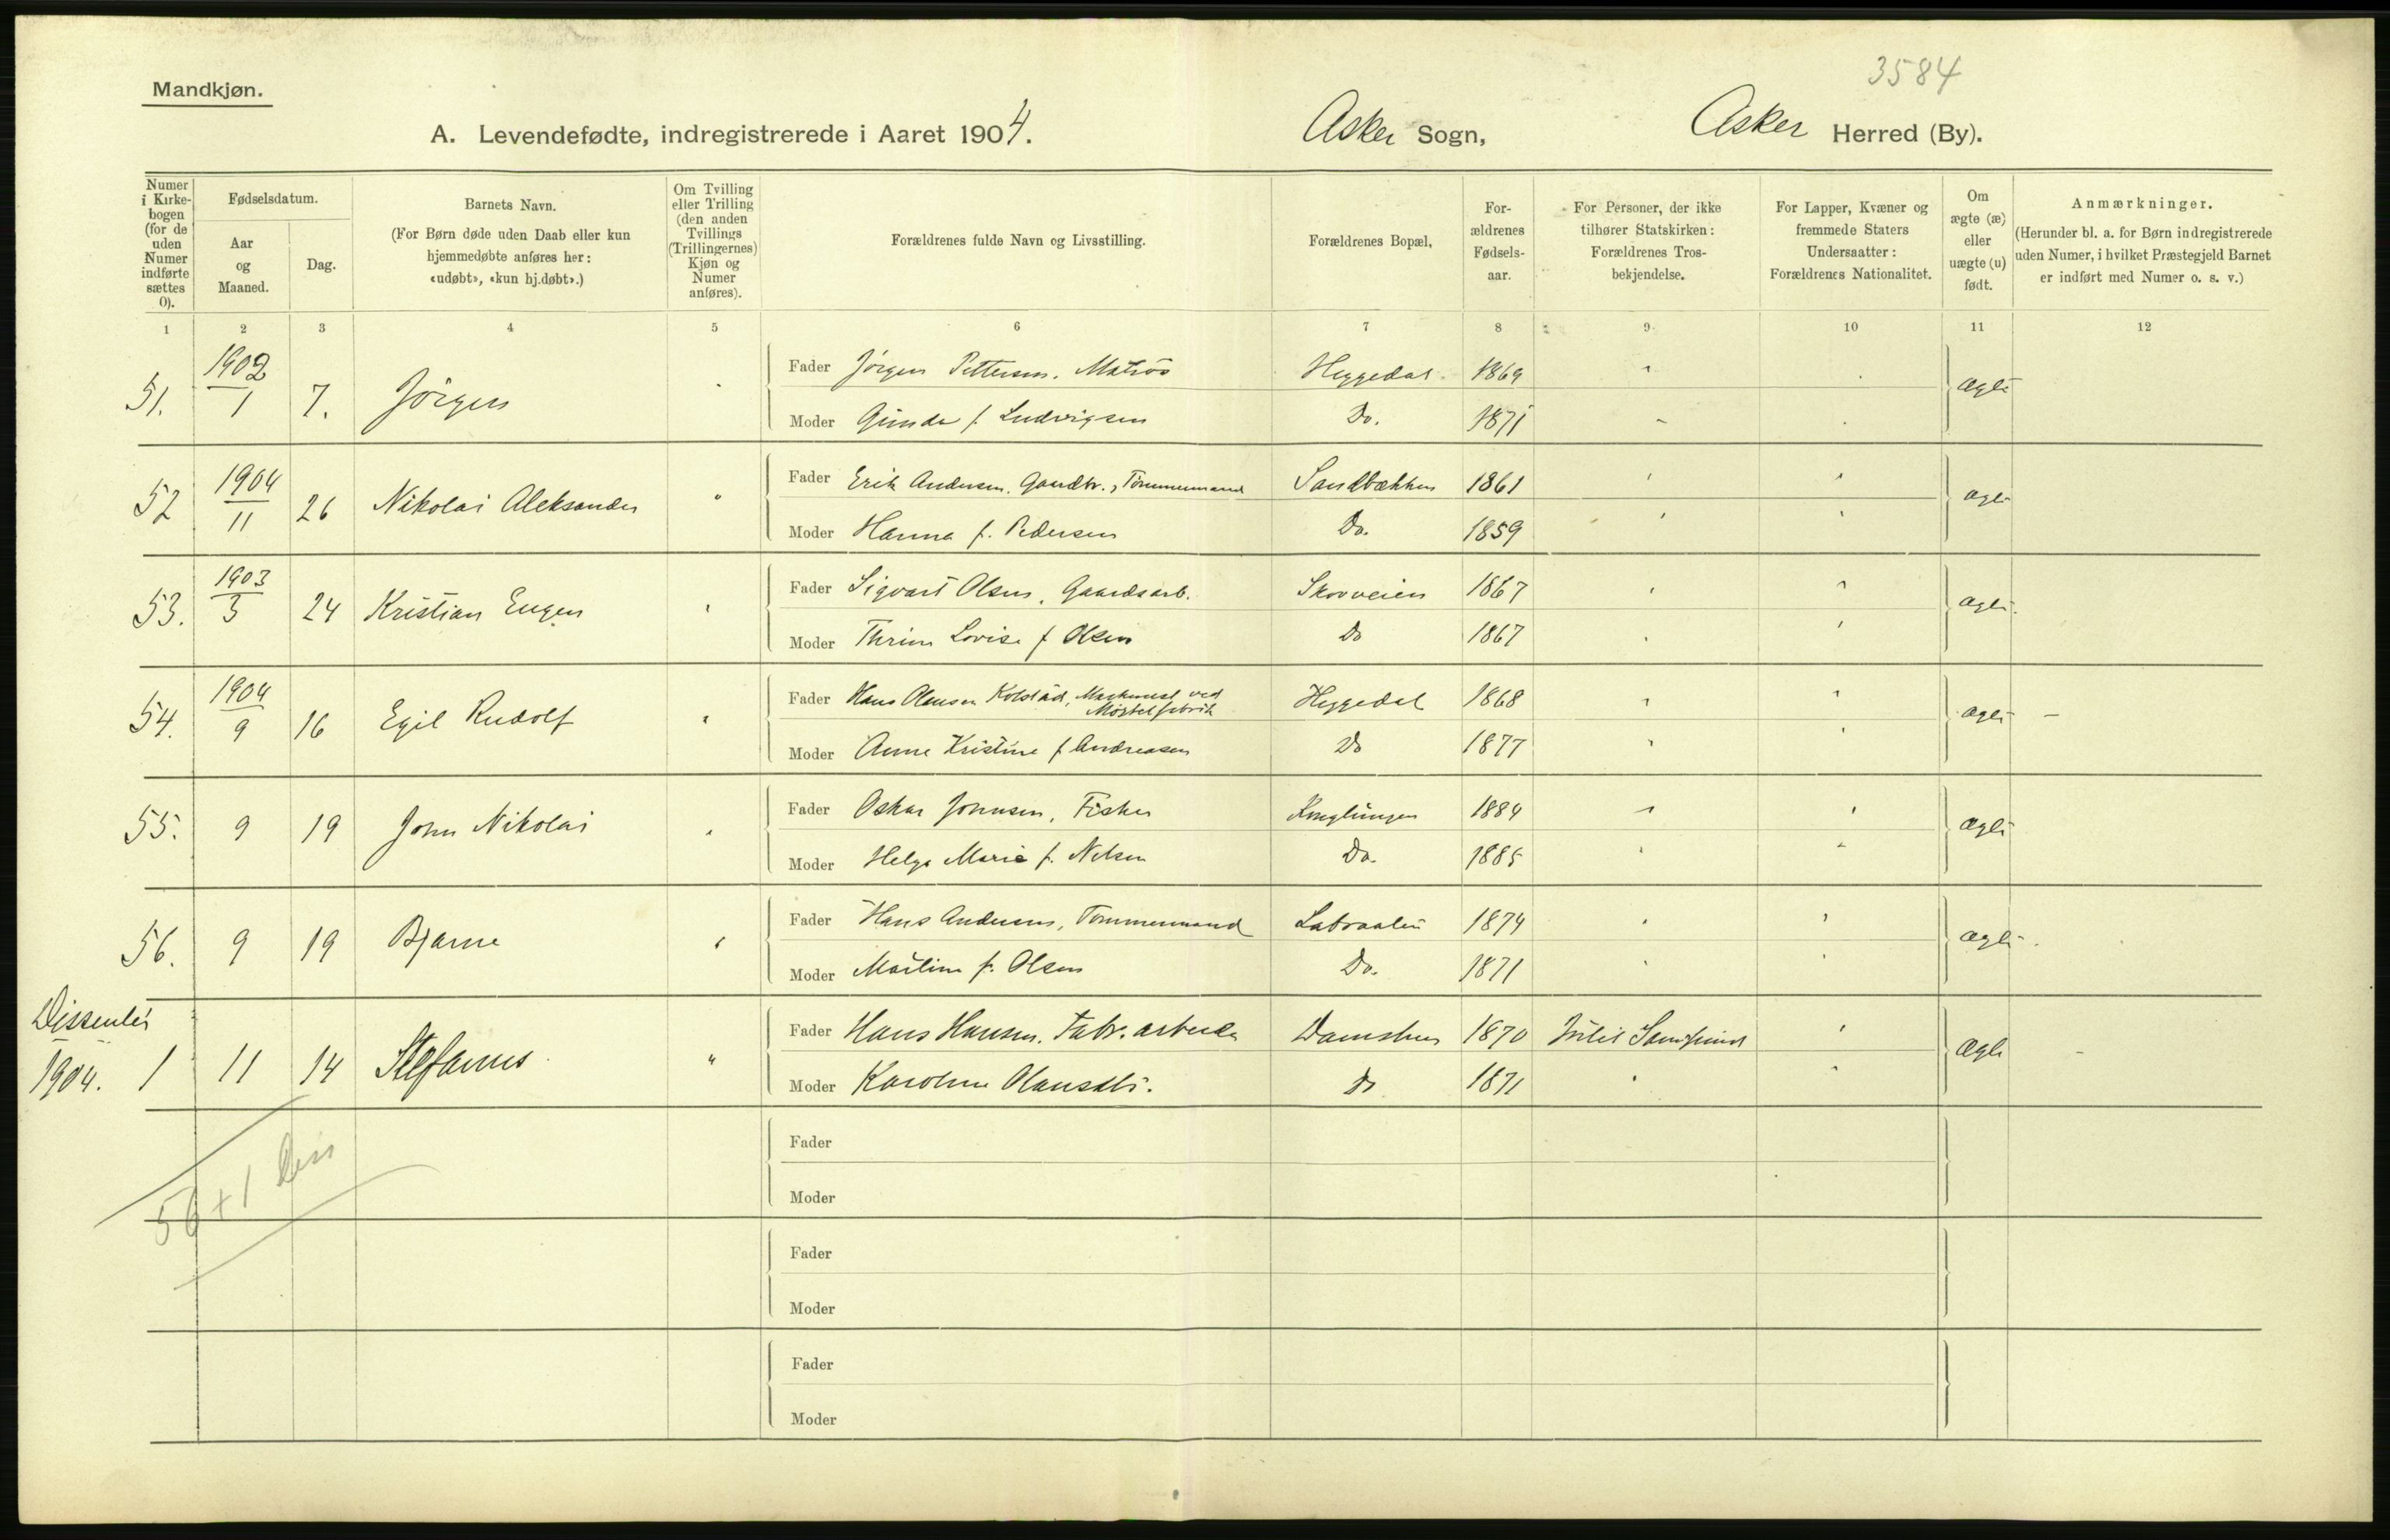 3584
Mandkjøn.
A. Levendefødte, indregistrerede i Aaret 1904. Asker Sogn, Asker Herred (By).
Numer i Kirkebogen (for de uden Numer indførte sættes 0).
Fødselsdatum.
Aar og Maaned.
Dag.
Barnets Navn.
(For Børn døde uden Daab eller kun hjemmedøbte anføres her: «udøbt», «kun hj.døbt».)
Om Tvilling eller Trilling (den anden Tvillings (Trillingernes) Kjøn og Numer anføres).
Forældrenes fulde Navn og Livsstilling.
Forældrenes Bopæl,
For-ældrenes Fødsels-aar.
For Personer, der ikke tilhører Statskirken: Forældrenes Tros-bekjendelse.
For Lapper, Kvæner og fremmede Staters Undersaatter: Forældrenes Nationalitet.
Om ægte (æ) eller uægte (u) født.
Anmærkninger.
(Herunder bl. a. for Børn indregistrerede uden Numer, i hvilket Præstegjeld Barnet er indført med Numer o. s. v.)
1 2 3 4 5 6 7 8 9 10 11 12
51. 1902/1 7. Jörgen Fader Jörgen Pettersen. Matros Heggedal 1869 ægte
Moder Gunda f. Ludvigsen Do. 1871
52 1904/11 26 Nikolai Aleksander Fader Erik Andersen. Gaardbr., Tömmermand Sandbækken 1861 ægte
Moder Hanna f. Pedersen Do. 1859
53. 1903/3 24 Kristian Eugen Fader Sigvart Olsen, Gaardsarb. Skovveien 1867 ægte
Moder Thrine Lovise f Olsen Do 1867
54. 1904/9 16 Egil Rudolf Fader Hans Olausen Kolstad, Maskinist ved Heggedal 1868 ægte –
Møbelfabrik
Moder Anne Kristine f Andreasen Do 1877
55. 9 19 John Nikolai Fader Oskar Johnsen, Fisker Konglungen 1884 ægte
Moder Helga Marie f. Nilsen Do. 1885
56. 9 19 Bjarne Fader Hans Andersen, Tömmermand 1874 ægte
Moder Martine f. Olsen Do. 1871
Dissenter
1904. 1 11 14 Stefanus " Fader Hans Hansen. Fabr. arbeider Damslun 1870 Samfund ægte
Moder Karoline Olausdtr. Do 1871
56 + 1 Diss
Fader
Moder
Fader
Moder
Fader
Moder